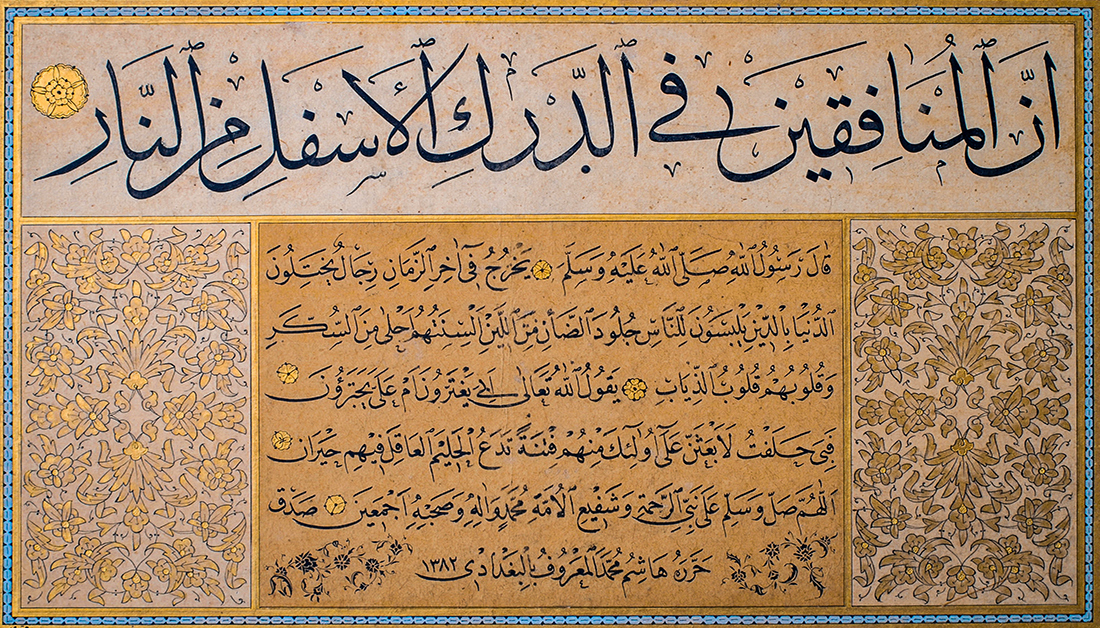 اِنَّ الْمُنَافِقِينَ فِي الدَّرَكِ الْاَسْفَلِ مِنَ النَّارِ
قَالَ رَسُولُ اللّٰهِ صَلَّى اللّٰهُ عَلَيْهِ وَسَلَّمَ يَخْرُجُ فِى آخِرِ الزَّمَانِ رِجَالٌ يَخْتِلُونَ
الدُّنْيَا بِالدِّينِ يَلْبَسُونَ لِلنَّاسِ جُلُودَ الضَّأْنِ مِنَ اللِّينِ اَلْسِنَتُهُمْ اَحْلٰى مِنَ السُّكَّرِ
وَقُلُوبُهُمْ قُلُوبُ الذِّيَابِ يَقُولُ اللّٰهُ تَعَالٰى اَبِى يَغْتَرُّونَ اَمْ عَلَىَّ يَجْتَرِؤُنَ
فَبِى حَلَفْتُ لَاَبْعَثَنَّ عَلٰى اُولٰئِكَ مِنْهُمْ فِتْنَةً تَدَعُ الْحَلِيمَ الْعَاقِلَ فِيهِمْ حَيْرَانَ
اَللّٰهُمَّ صَلِّ وَسَلِّمْ عَلٰى نَبِىِّ الرَّحْمَةِ وَشَفِيعِ الْاُمَّةِ مُحَمَّدٍ وَآلِهِ وَصَحْبِهِ اَجْمَعِينَ صَدَقَ
حَرَّرَهُ هَاشِم مُحَمَّد الْمَعْرُوفُ بِالْبَغْدَادِى ١٣٨٢